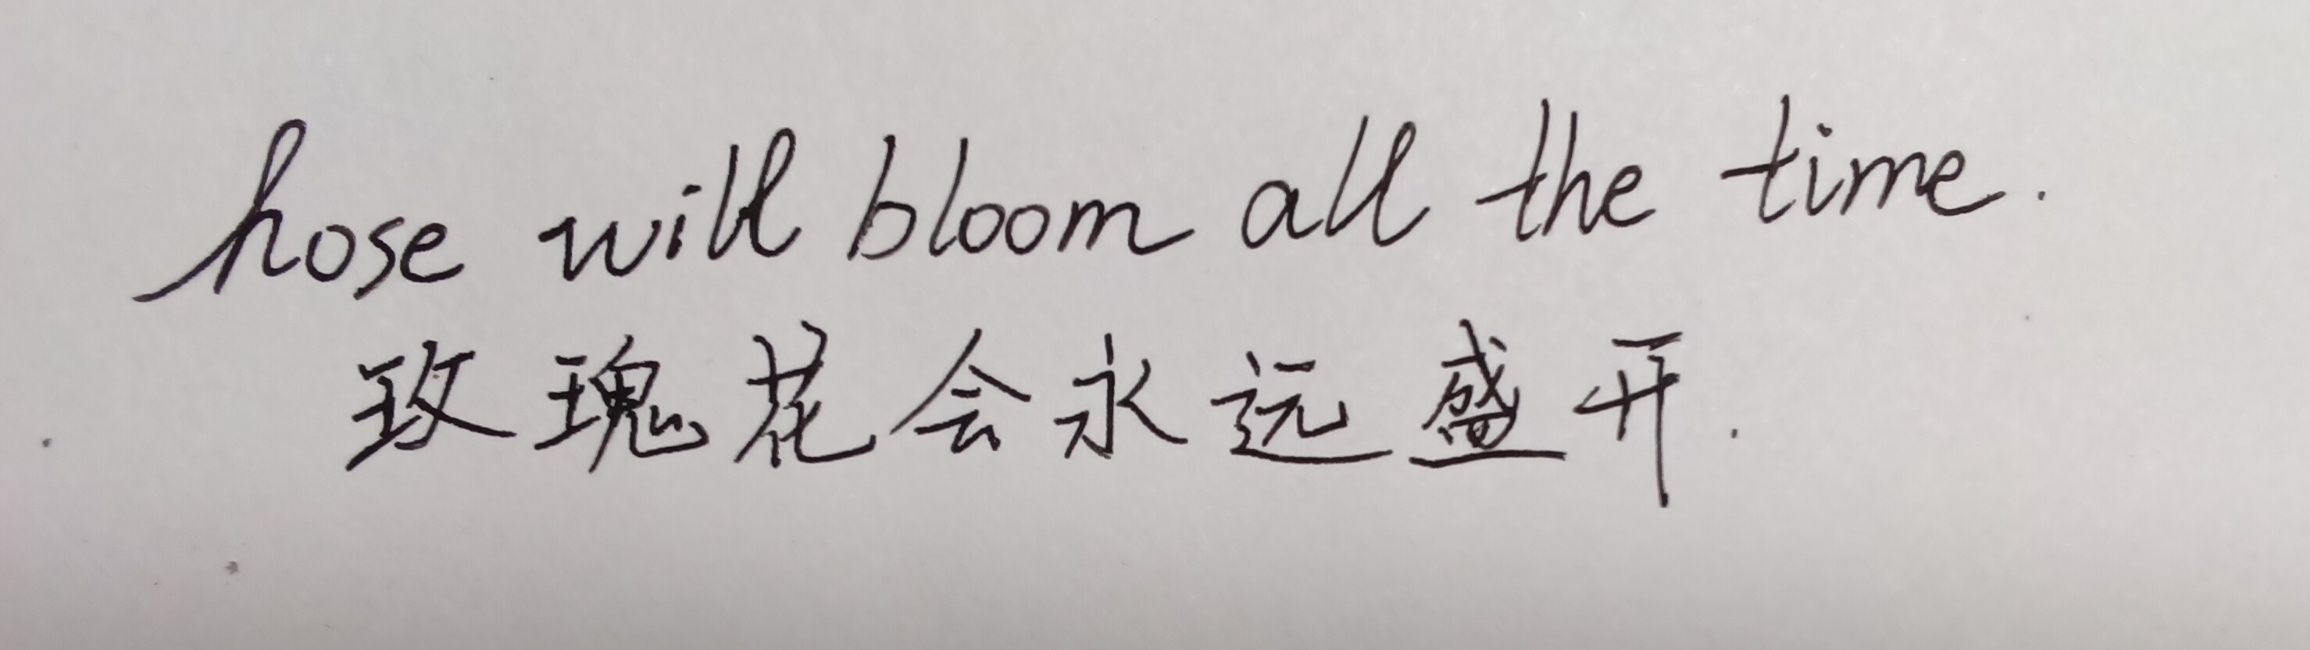 hose will bloom all the time.
玫瑰花会永远盛开.